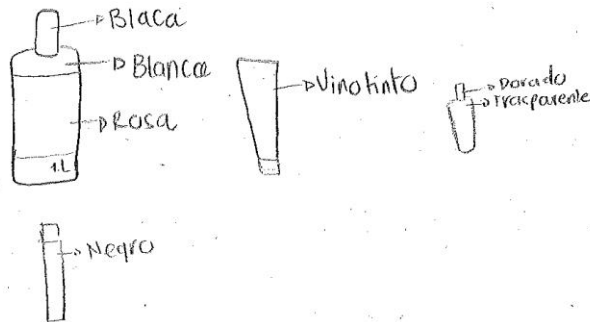 Blaca
Blanca
Rosa
1.L
Vinotinto
Dorado
Trasparente
Negro